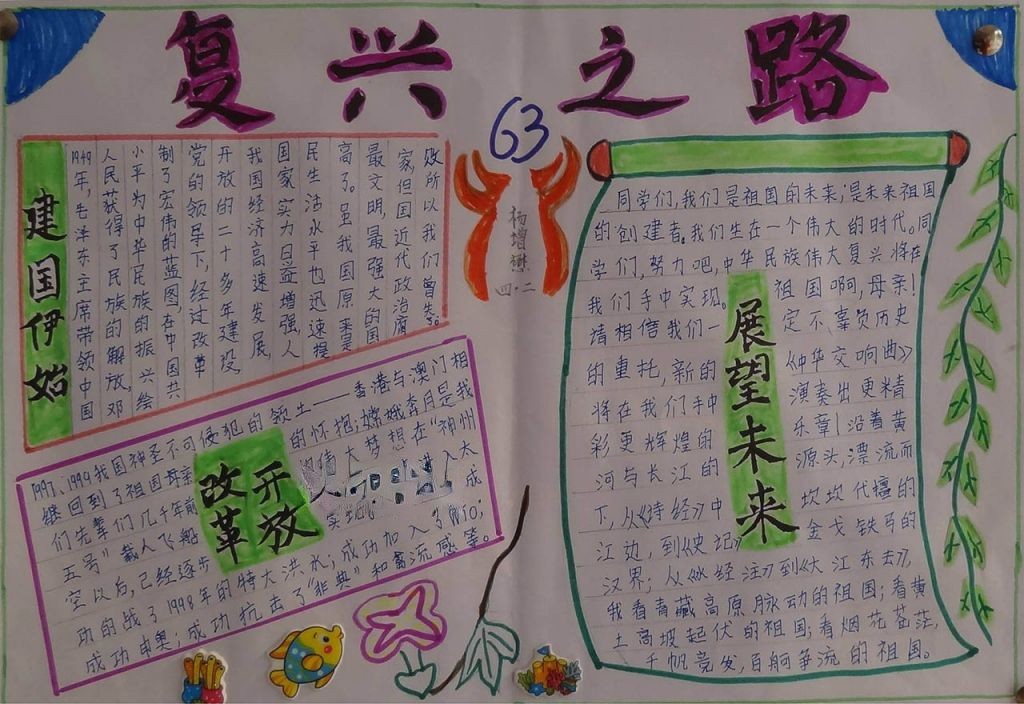 复兴之路
63
杨增懋
四·二
建国伊始
1949年,毛泽东主席带领中国
人民获得了民族的解放,邓
小平为中华民族的振兴绘
制了宏伟的蓝图,在中国共
党的领导下,经过改革
开放的二十多年建设,
我国经济高速发展,
国家实力日益增强,人
民生活水平也迅速提
高了。虽我国原来是
最文明,最强大的国
家,但国近代政治腐
败所以我们曾失。
改革开放
1997、1999我国神圣不可侵犯的领土——香港与澳门相
继回到了祖国母亲的怀抱;嫦娥奔月是我
们先辈们几千年前的伟大梦想在"神州
五号"载人飞船 入太
空以后,已经逐步实现 成
功的战了1998年的特大洪水;成功加入了Wio;
成功申奥;成功抗击了"非典"和禽流感等。
展望未来
同学们,我们是祖国的未来;是未来祖国
的创建者。我们生在一个伟大的时代。同
学们,努力吧,中华民族伟大复兴将在
我们手中实现。祖国啊,母亲!
请相信我们一定不辜负历史
的重托,新的《中华交响曲》
将在我们手中演奏出更精
彩更辉煌的乐章!沿着黄
河与长江的源头,漂流而
下,从《诗经》中坎坎伐檀的
江边,到《史记》金戈铁弓的
汉界;从《水经注》到《大江东去》,
我看青藏高原脉动的祖国;看黄
土高坡起伏的祖国;看烟花苍茫,
千帆竞发,百舸争流的祖国。